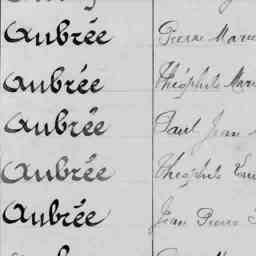 Aubrée Pierre Marie
Aubrée Théophile Mari
Aubrée Paul Jean
Aubrée Théophile Em
Aubrée Jean Pierre